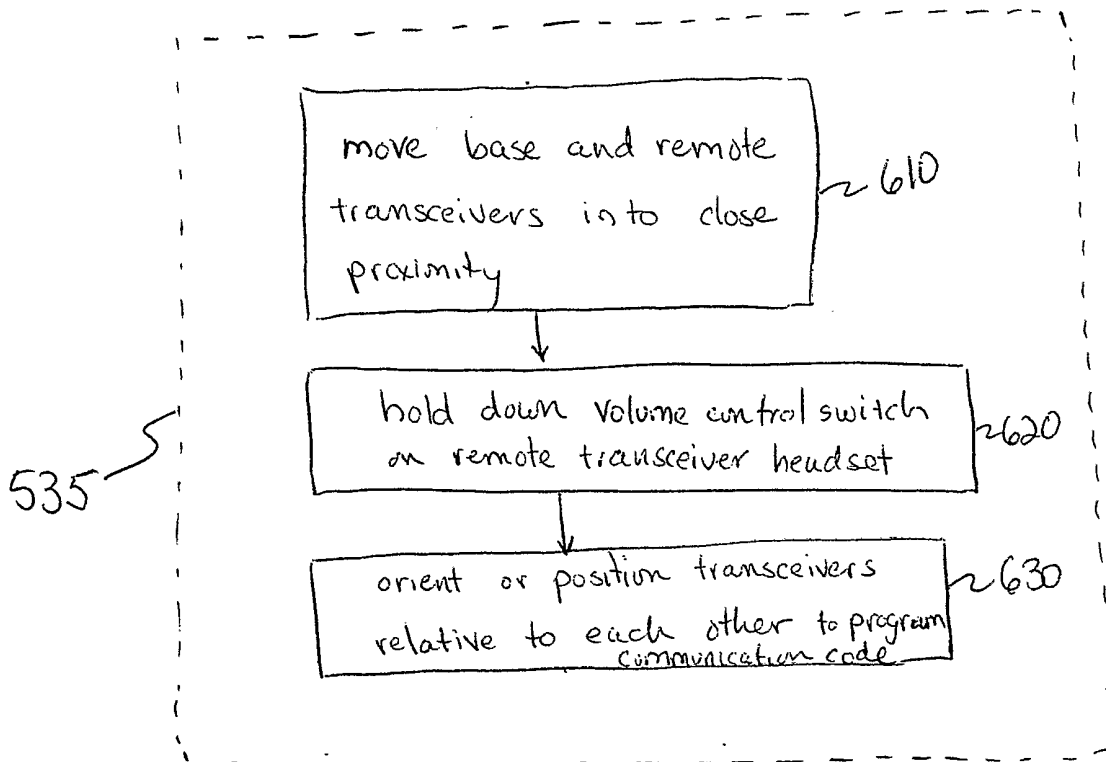 move base and remote
transceivers into close
proximity
610
hold down volume control switch
on remote transceiver headset
620
535
orient or position transceivers
relative to each other to program
communication code
630